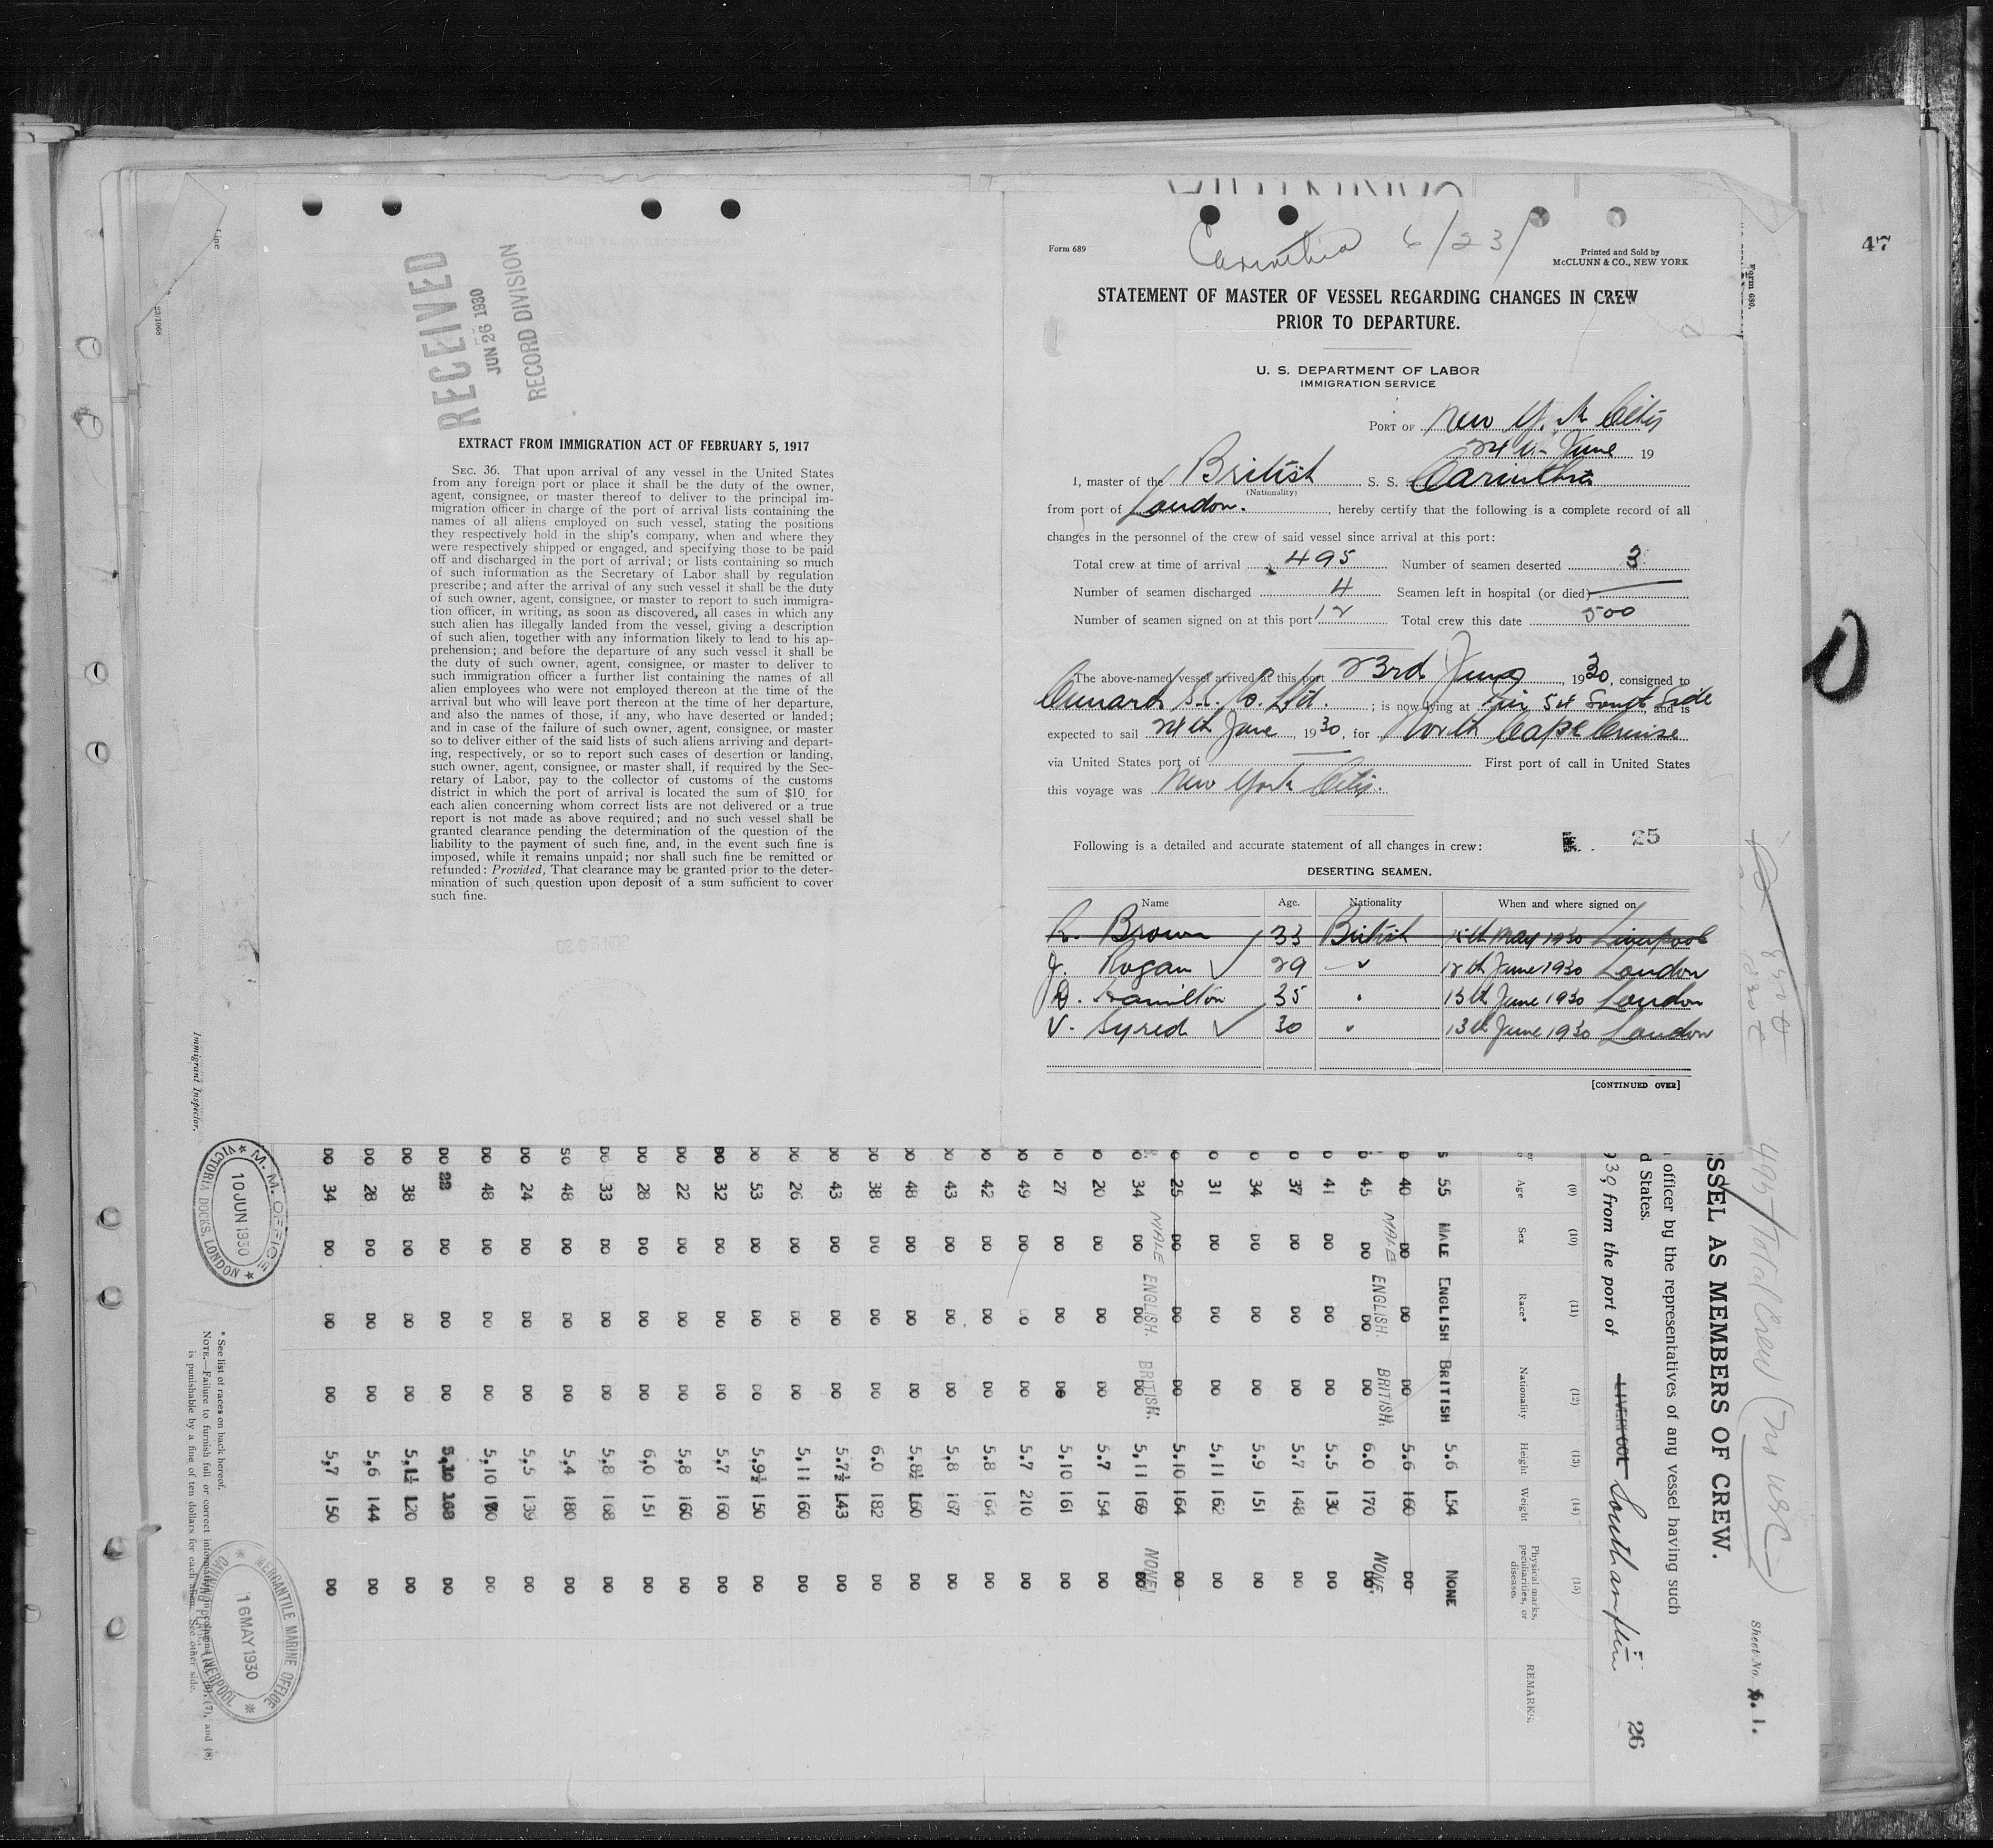 47
Line
23/1068
RECEIVED
JUN 26 1930
RECORD DIVISION
EXTRACT FROM IMMIGRATION ACT OF FEBRUARY 5, 1917
SEC. 36. That upon arrival of any vessel in the United States
from any foreign port or place it shall be the duty of the owner,
agent, consignee, or master thereof to deliver to the principal im-
migration officer in charge of the port of arrival lists containing the
names of all aliens employed on such vessel, stating the positions
they respectively hold in the ship's company, when and where they
were respectively shipped or engaged, and specifying those to be paid
off and discharged in the port of arrival; or lists containing so much
of such information as the Secretary of Labor shall by regulation
prescribe; and after the arrival of any such vessel it shall be the duty
of such owner, agent, consignee, or master to report to such immigra-
tion officer, in writing, as soon as discovered, all cases in which any
such alien has illegally landed from the vessel, giving a description
of such alien, together with any information likely to lead to his ap-
prehension; and before the departure of any such vessel it shall be
the duty of such owner, agent, consignee, or master to deliver to
such immigration officer a further list containing the names of all
alien employees who were not employed thereon at the time of the
arrival but who will leave port thereon at the time of her departure,
and also the names of those, if any, who have deserted or landed;
and in case of the failure of such owner, agent, consignee, or master
so to deliver either of the said lists of such aliens arriving and depart-
ing, respectively, or so to report such cases of desertion or landing,
such owner, agent, consignee, or master shall, if required by the Sec-
retary of Labor, pay to the collector of customs of the customs
district in which the port of arrival is located the sum of $10 for
each alien concerning whom correct lists are not delivered or a true
report is not made as above required; and no such vessel shall be
granted clearance pending the determination of the question of the
liability to the payment of such fine, and, in the event such fine is
imposed, while it remains unpaid; nor shall such fine be remitted or
refunded: Provided, That clearance may be granted prior to the deter-
mination of such question upon deposit of a sum sufficient to cover
such fine.
Form 689
Carinthia 6/23/
Printed and Sold by
McCLUNN & CO., NEW YORK
STATEMENT OF MASTER OF VESSEL REGARDING CHANGES IN CREW
PRIOR TO DEPARTURE.
U. S. DEPARTMENT OF LABOR
IMMIGRATION SERVICE
PORT OF New Y. K City
24th June 19
I, master of the British S. S. Carinthia
(Nationality)
from port of London. , hereby certify that the following is a complete record of all
changes in the personnel of the crew of said vessel since arrival at this port:
Total crew at time of arrival 495 Number of seamen deserted 3
Number of seamen discharged 4 Seamen left in hospital (or died)
Number of seamen signed on at this port 12 Total crew this date 500
The above-named vessel arrived at this port 23rd June, 1930, consigned to
Cunard S.S. Co. Ltd. ; is now lying at Pier 54 South Side and is
expected to sail 24th June, 1930, for North Cape Cruise
via United States port of First port of call in United States
this voyage was New York City.
Following is a detailed and accurate statement of all changes in crew: 25
DESERTING SEAMEN.
Name Age. Nationality When and where signed on
R. Brown 33 British 15th May 1930 Liverpool
J. Rogan 29 12th June 1930 London
D. Hamilton 35 13th June 1930 London
V. Syred 30 13th June 1930 London
[CONTINUED OVER]
Form 680.
Immigrant Inspector.
M. M. OFFICE
10 JUN 1930
VICTORIA DOCKS, LONDON
MERCANTILE MARINE OFFICE
16 MAY 1930
CANNING PLACE, LIVERPOOL
* See list of races on back hereof.
NOTE.—Failure to furnish full or correct information in columns (6), (7), and (8)
is punishable by a fine of ten dollars for each alien. See other side.
495 Total Crew (no USC)
Sheet No. 1.
SSEL AS MEMBERS OF CREW.
officer by the representatives of any vessel having such
d States.
930 from the port of LIVERPOOL Southampton 26
(9) (10) (11) (12) (13) (14) (15)
Age Sex Race* Nationality Height Weight Physical marks, peculiarities, or diseases REMARKS.
55 MALE ENGLISH BRITISH 5.6 154 NONE
40 DO DO DO 5.6 160 DO
MALE ENGLISH. BRITISH. NONE.
45 DO DO DO 6.0 170 DO
41 DO DO DO 5.5 130 DO
37 DO DO DO 5.7 148 DO
34 DO DO DO 5.9 151 DO
31 DO DO DO 5,11 162 DO
25 DO DO DO 5.10 164 DO
MALE ENGLISH. BRITISH. NONE!
34 DO DO DO 5,11 169 DO
20 DO DO DO 5.7 154 DO
27 DO DO DO 5,10 161 DO
49 DO DO DO 5.7 210 DO
42 DO DO DO 5.8 164 DO
43 DO DO DO 5,8 167 DO
48 DO DO DO 5,8½ 160 DO
38 DO DO DO 6.0 182 DO
43 DO DO DO 5.7½ 143 DO
26 DO DO DO 5,11 160 DO
53 DO DO DO 5,9½ 150 DO
32 DO DO DO 5.7 160 DO
22 DO DO DO 5,8 160 DO
28 DO DO DO 6,0 151 DO
33 DO DO DO 5,8 168 DO
48 DO DO DO 5,4 180 DO
24 DO DO DO 5,5 139 DO
48 DO DO DO 5,10 DO
DO DO DO 5,10 168 DO
38 DO DO DO 5,1½ 120 DO
28 DO DO DO 5,6 144 DO
34 DO DO DO 5,7 150 DO